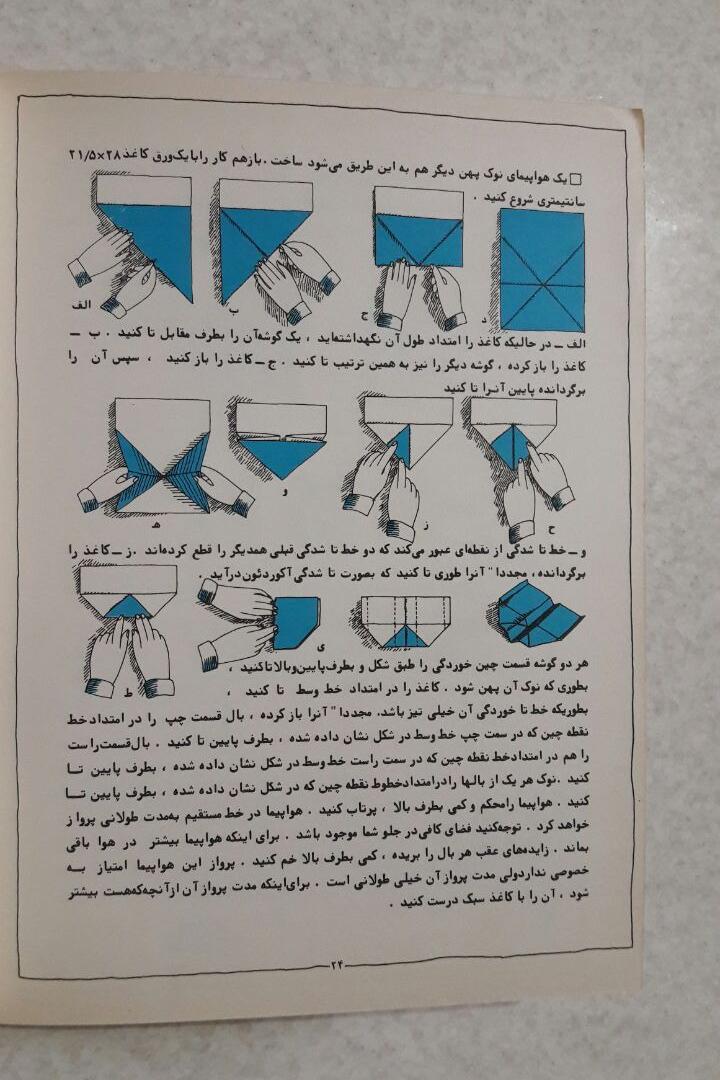 □ یک هواپیمای نوک پهن دیگر هم به این طریق می‌شود ساخت . بازهم کار رابا یک ورق کاغذ ۲۸×۲۱/۵
سانتیمتری شروع کنید .
الف ب ج د
الف ــ در حالیکه کاغذ را امتداد طول آن نگهداشته‌اید ، یک گوشه‌آن را بطرف مقابل تا کنید . ب ــ
کاغذ را باز کرده ، گوشه دیگر را نیز به همین ترتیب تا کنید . ج ــ کاغذ را باز کنید ، سپس آن را
برگردانده پایین آنرا تا کنید
ه و ز ح
و ــ خط تا شدگی از نقطه‌ای عبور می‌کند که دو خط تا شدگی قبلی همدیگر را قطع کرده‌اند . ز ــ کاغذ را
برگردانده ، مجددا" آنرا طوری تا کنید که بصورت تا شدگی آکوردئون درآید .
ط ی
هر دو گوشه قسمت چین خوردگی را طبق شکل و بطرف پایین وبالا تاکنید ،
بطوری که نوک آن پهن شود . کاغذ را در امتداد خط وسط تا کنید ،
بطوریکه خط تا خوردگی آن خیلی تیز باشد. مجددا" آنرا باز کرده ، بال قسمت چپ را در امتداد خط
نقطه چین که در سمت چپ خط وسط در شکل نشان داده شده ، بطرف پایین تا کنید . بال قسمت راست
را هم در امتداد خط نقطه چین که در سمت راست خط وسط در شکل نشان داده شده ، بطرف پایین تــا
کنید .نوک هر یک از بالها رادرامتدادخطوط نقطه چین که در شکل نشان داده شده ، بطرف پایین تــا
کنید . هواپیما رامحکم و کمی بطرف بالا ، پرتاب کنید . هواپیما در خط مستقیم به‌مدت طولانی پرواز
خواهد کرد . توجه‌کنید فضای کافی‌در جلو شما موجود باشد . برای اینکه هواپیما بیشتر در هوا باقی
بماند . زایده‌های عقب هر بال را بریده ، کمی بطرف بالا خم کنید . پرواز این هواپیما امتیاز بــه
خصوصی نداردولی مدت پرواز آن خیلی طولانی است . برای‌اینکه مدت پرواز آن ازآنچه‌که‌هست بیشتر
شود ، آن را با کاغذ سبک درست کنید .
۲۴